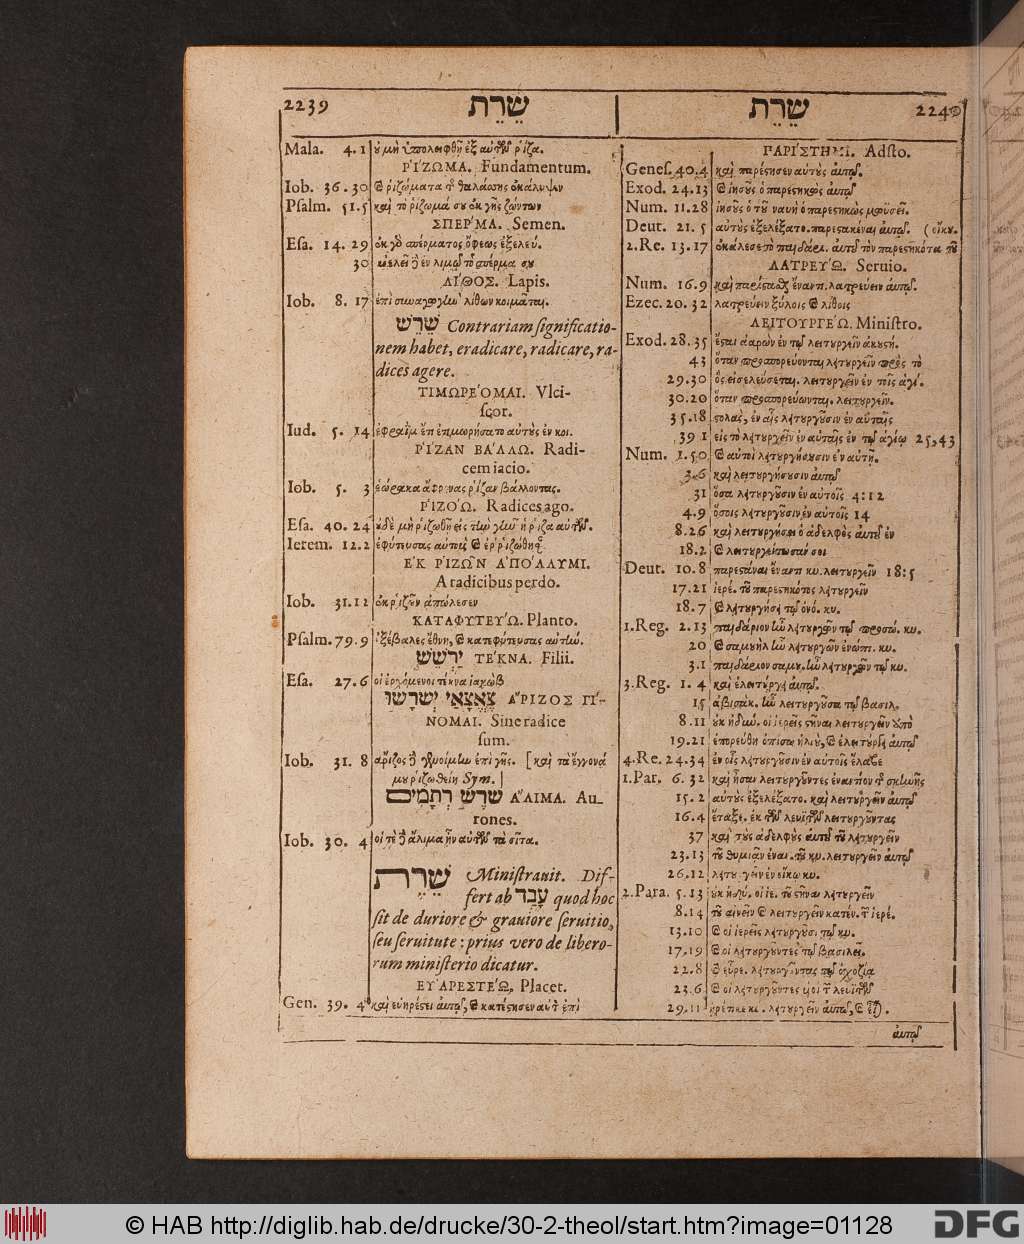 2239 שֵׁרֵת
Mala. 4.1 ὐ μὴ ὑπολειφθῇ ἐξ αὐτῶν ῥίζα.
ῬΙ´ΖΩΜΑ. Fundamentum.
Iob. 36.30 καὶ ῥιζώματα τ̃ θαλάσσης ἐκάλυψεν
Psalm. 51.5 καὶ τὸ ῥίζωμά σου ἐκ γῆς ζώντων
ΣΠΕ´ΡΜΑ. Semen.
Esa. 14.29 ἐκ γὸ σπέρματος ὄφεως ἐξελεύ.
30 ἀνελεῖ δὲ ἐν λιμῷ τὸ σπέρμα σου
ΛΙ´ΘΟΣ. Lapis.
Iob. 8.17 ἐπὶ συναγωγὴν λίθων κοιμᾶται.
שֵׁרֵשׁ Contrariam ſignificatio-
nem habet, eradicare, radicare, ra-
dices agere.
ΤΙΜΩΡΕ´ΟΜΑΙ. Vlci-
ſcor.
Iud. 5.14 ἐφραὶμ
ῬΙ´ΖΑΝ ΒΑ´ΛΛΩ. Radi-
cem iacio.
Iob. 5.3 ἑώρακα ἄφρονας ῥίζαν βάλλοντας.
ῬΙΖΟ´Ω. Radices ago.
Esa. 40.24 ὐδὲ μὴ ῥιζωθῇ εἰς τὴν γῆν ἡ ῥίζα αὐτῶν.
Ierem. 12.2 ἐφύτευσας αὐτοὺς καὶ ἐῤῥιζώθησ.
ἘΚ ῬΙΖΩ͂Ν ἈΠΟ´ΛΛΥΜΙ.
A radicibus perdo.
Iob. 31.12 ἐκ ῥιζῶν ἀπώλεσεν
ΚΑΤΑΦΥΤΕΥ´Ω. Planto.
Pſalm. 79.9 ἐξέβαλες ἔθνη, καὶ κατεφύτευσας αὐτὴν.
יְרָשֵׁשׁ ΤΕ´ΚΝΑ. Filii.
Esa. 27.6 οἱ ἐρχόμενοι τέκνα ἰακὼβ
צֶאֱצָאַי יְשֹׁרָשׁוּ ἌΡΙΖΟΣ ΓΙ´-
ΝΟΜΑΙ. Sine radice
ſum.
Iob. 31.8 ἄῤῥιζος δὲ γενοίμην ἐπὶ γῆς. [καὶ τὰ ἔγγονά
μυ ῥιζωθείη Sym.]
שֹׁרֶשׁ רְתָמִים ἍΛΙΜΑ. Au-
rones.
Iob. 30.4 οἵ τε δὲ ἅλιμα ἦν αὐτῶν τὰ σῖτα.
שֵׁרֵת Miniſtrauit. Dif-
fert ab עָבַד quod hoc
ſit de duriore & grauiore ſeruitio,
ſeu ſeruitute: prius vero de libero-
rum miniſterio dicatur.
ΕΥ᾽ΑΡΕΣΤΕ´Ω, Placet.
Gen. 39.4 καὶ εὐηρέστει αὐτῷ, καὶ κατέστησεν αὐτ̃ ἐπὶ
שֵׁרֵת 2240
ΠΑΡΙ´ΣΤΗΜΙ. Adſto.
Geneſ. 40.4 καὶ παρέστησεν αὐτοὺς αὐτῷ.
Exod. 24.13 καὶ ἰησοῦς ὁ παρεστηκὼς αὐτῷ
Num. 11.28 ἰησοῦς ὁ τοῦ ναυὴ ὁ παρεστηκὼς μωϋσεῖ.
Deut. 21.5 αὐτοὺς ἐξελέξατο. παρεστακέναι αὐτῷ. (οἴκυ.
2.Re. 13.17 ἐκάλεσε τὸ παιδάρι. αὐτοῦ τὸν παρεστηκότα τοῦ
ΛΑΤΡΕΥ´Ω. Seruio.
Num. 16.9 καὶ παρίστασθ ἔναντι λατρεύειν αὐτῷ.
Ezec. 20.32 λατρεύειν ξύλοις καὶ λίθοις
ΛΕΙΤΟΥΡΓΕ´Ω. Miniſtro.
Exod. 28.35 ἔσται ἀαρὼν ἐν τῷ λειτυργεῖν ἀκυστή.
43 ὅταν προσπορεύονται λειτυργεῖν πρὸς τὸ
29.30 ὃς εἰσελεύσεται. λειτυργεῖν ἐν τοῖς ἁγί.
30.20 ὅταν προσπορεύωνται. λειτυργεῖν.
35.18 στολάς, ἐν αἷς λειτυργῦσιν ἐν αὐταῖς
39 1 εἰς τὸ λειτυργεῖν ἐν αὐταῖς ἐν τῷ ἁγίῳ 25,43
Num. 1.50 καὶ αὐτοὶ λειτυργήσυσιν ἐν αὐτῇ.
3.6 καὶ λειτυργήσυσιν αὐτῷ
31 ὅσα λειτυργῦσιν ἐν αὐτοῖς 4:12
4.9 ὅσοις λειτυργῦσιν ἐν αὐτοῖς 14
8.26 καὶ λειτυργήσει ὁ ἀδελφὸς αὐτοῦ ἐν
18.2 καὶ λειτυργείτωσάν σοι
Deut. 10.8 παρεστάναι ἔναντι κυ. λειτυργεῖν 18:5
17.21 ἱερέ. τοῦ παρεστηκότος λειτυργεῖν
18.7 καὶ λειτυργήσει τῷ ὀνό. κυ.
1.Reg. 2.13 παιδάριον ἦν λειτυργῶν τῷ προσώ. κυ.
20 καὶ σαμυὴλ ἦν λειτυργῶν ἐνώπι. κυ.
3.1 παιδάριον σαμυ. ἦν λειτυργῶν τῷ κυ.
3.Reg. 1.4 καὶ ἐλειτύργει αὐτῷ.
15 ἀβισὰκ. ἦν λειτυργῦσα τῷ βασιλ.
8.11 ὐκ ἠδύν. οἱ ἱερεῖς στῆναι λειτυργεῖν ἀπὸ
19.21 ἐπορεύθη ὀπίσω ἠλιύ, καὶ ἐλειτύργει αὐτῷ
4.Re. 24.34 ἐν οἷς λειτυργῦσιν ἐν αὐτοῖς ἔλαβε
1.Par. 6.32 καὶ ἦσαν λειτυργῦντες ἐναντίον τ̃ σκηνῆς
15.2 αὐτὺς ἐξελέξατο. καὶ λειτυργεῖν αὐτῷ
16.4 ἔταξε. ἐκ τῶν λευϊτῶν λειτυργῦντας
37 καὶ τὺς ἀδελφὺς αὐτοῦ τοῦ λειτυργεῖν
23.13 τοῦ θυμιᾶν ἐναι. τοῦ κυ. λειτυργεῖν αὐτῷ
26.12 λειτυργεῖν ἐν οἴκῳ κυ.
2.Para. 5.13 ὐκ ἠδύ. οἱ ἱε. τοῦ στῆναι λειτυργεῖν
8.14 τοῦ αἰνεῖν καὶ λειτυργεῖν κατέν. τ̃ ἱερέ.
13.10 καὶ οἱ ἱερεῖς λειτυργῦσι τῷ κυ.
17.19 καὶ οἱ λειτυργῦντες τῷ βασιλεῖ.
22.8 καὶ εὗρε. λειτυργῦντας τῷ ὀχοζίᾳ
23.6 καὶ οἱ λειτυργῦντες τ̃ λευϊτῶν
29.11 λειτυργεῖν αὐτῷ, καὶ
αὐτῷ
© HAB http://diglib.hab.de/drucke/30-2-theol/start.htm?image=01128
DFG